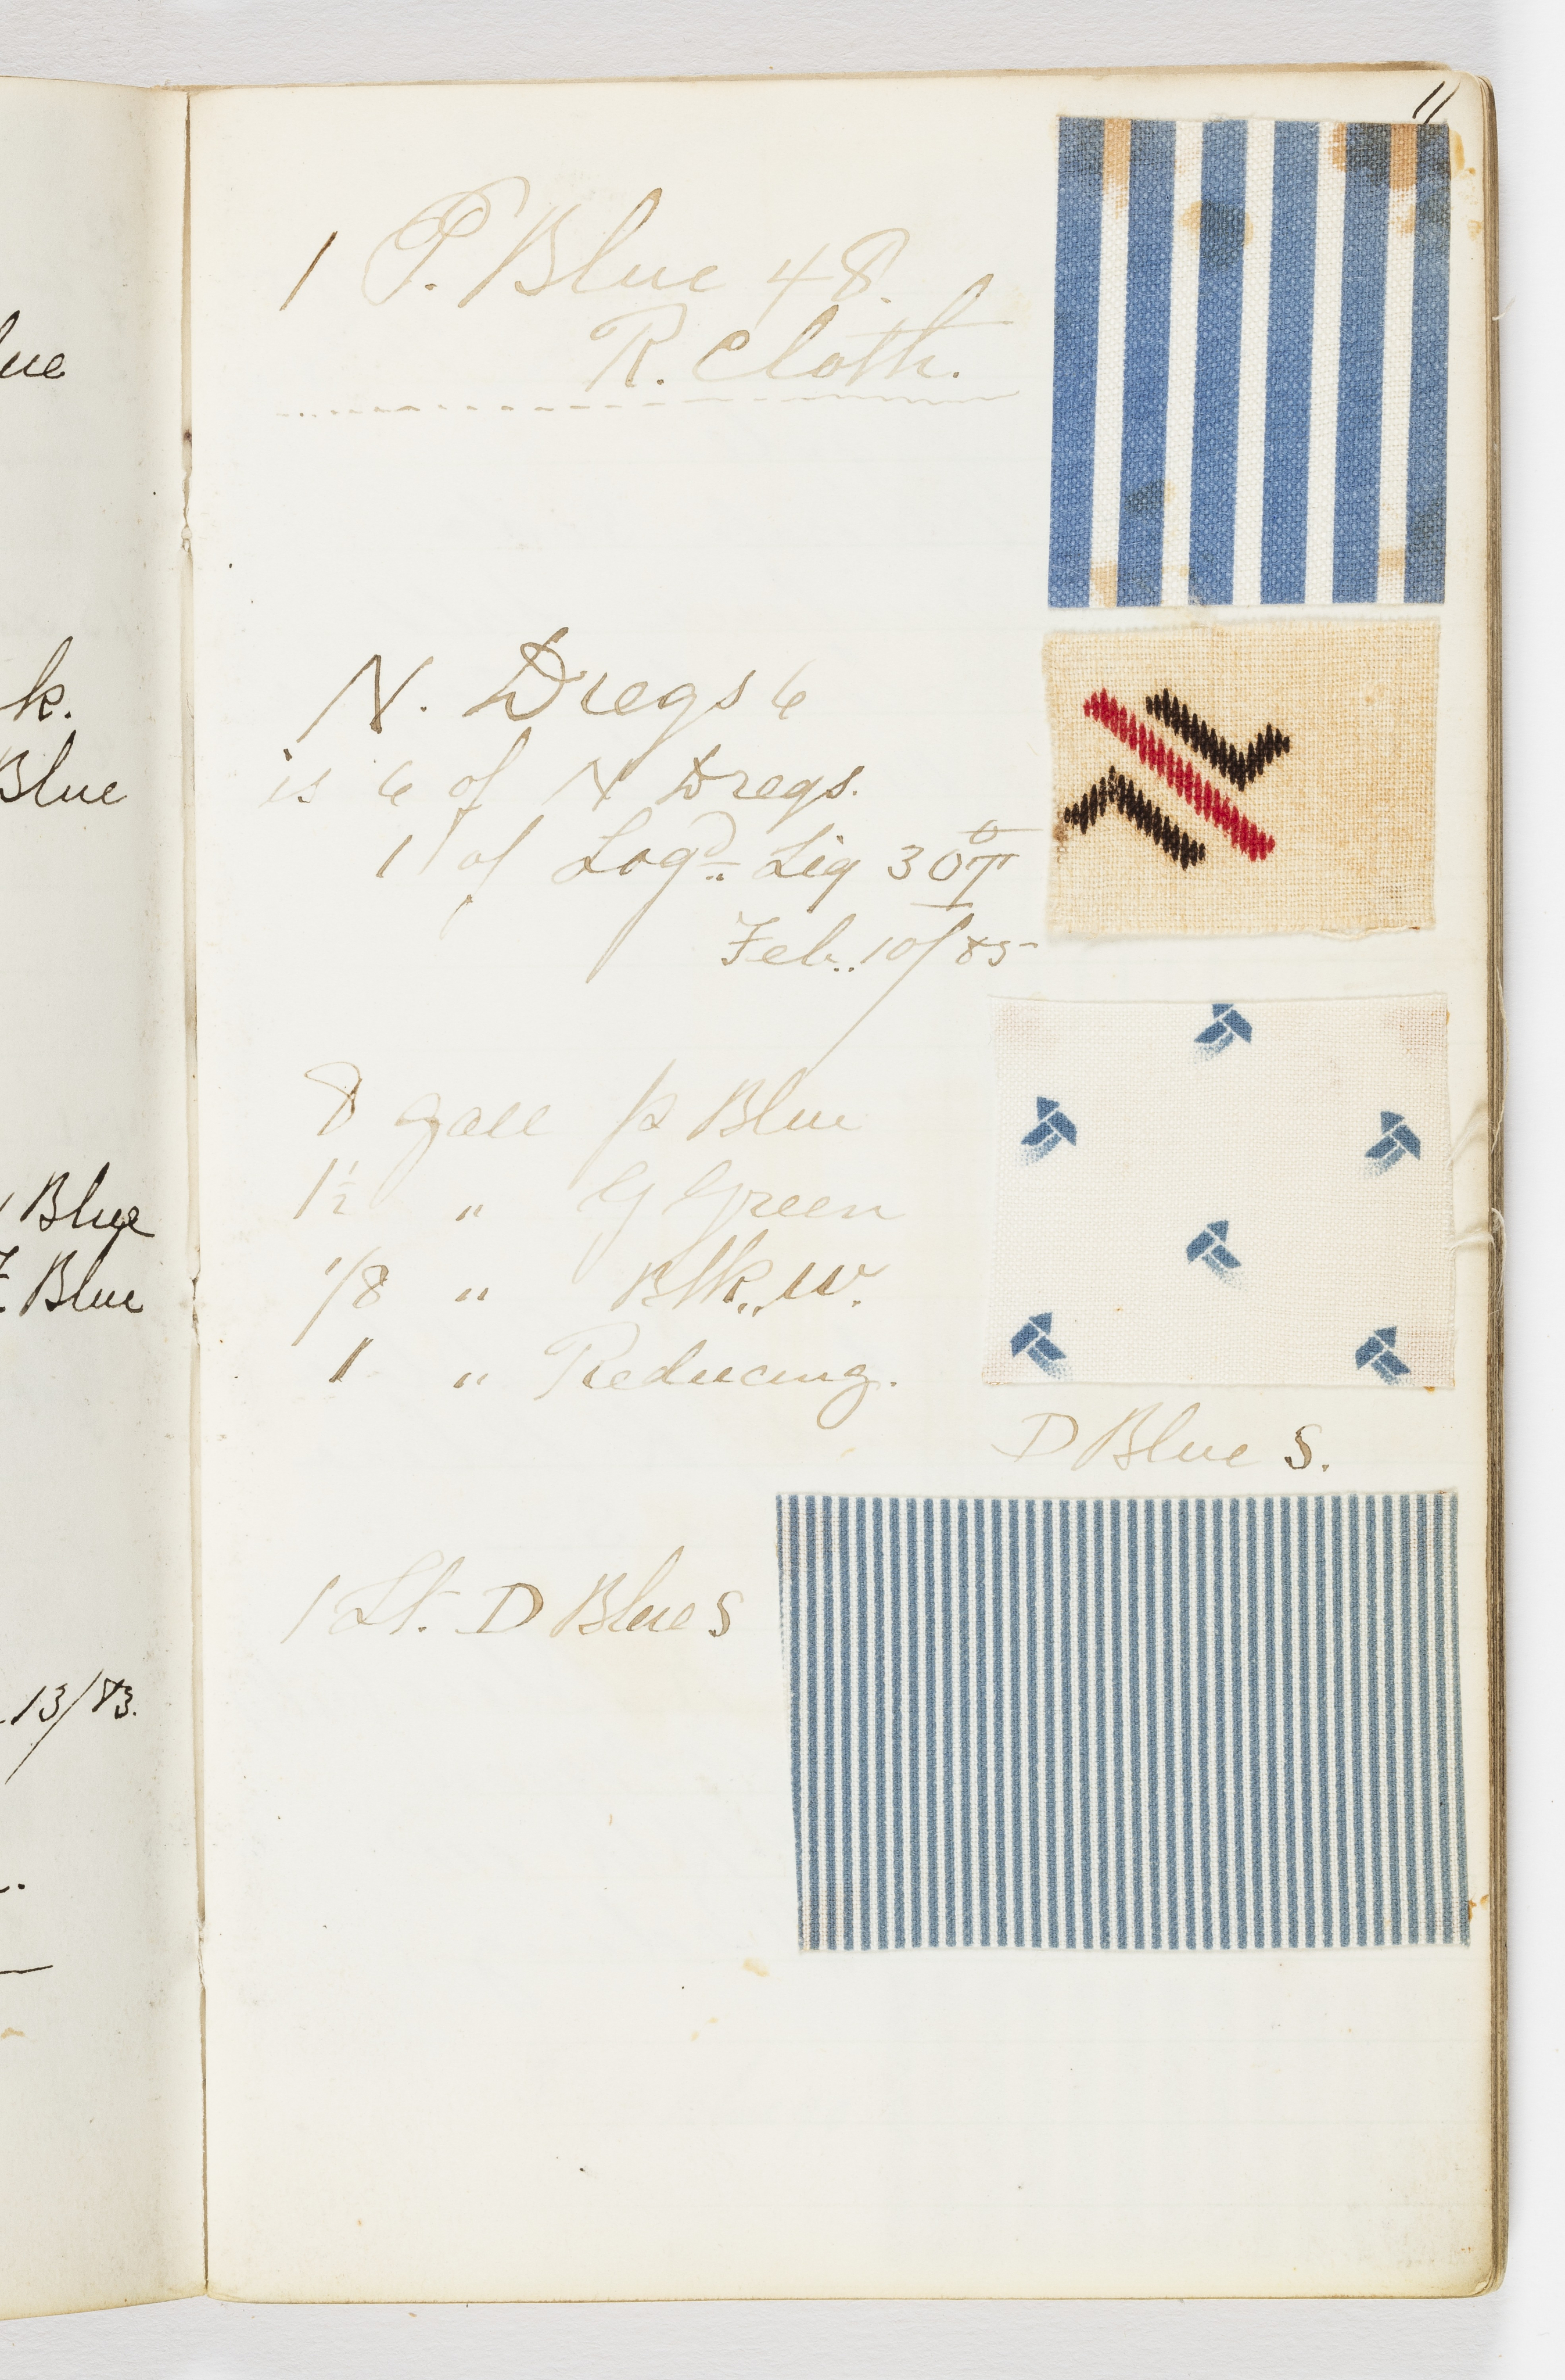 lue
k.
Blue
Blue
Blue
13/83.
11
1 P. Blue 48.
R. Cloth.
N. Dregs 6
is 6 of N Dregs.
1 of Logd. Liq 30°T
Feb. 10/85
8 gall p Blue
1½ " G Green
1/8 " Blk. W.
1 " Reducing.
D Blue S.
1 Lt. D Blue S